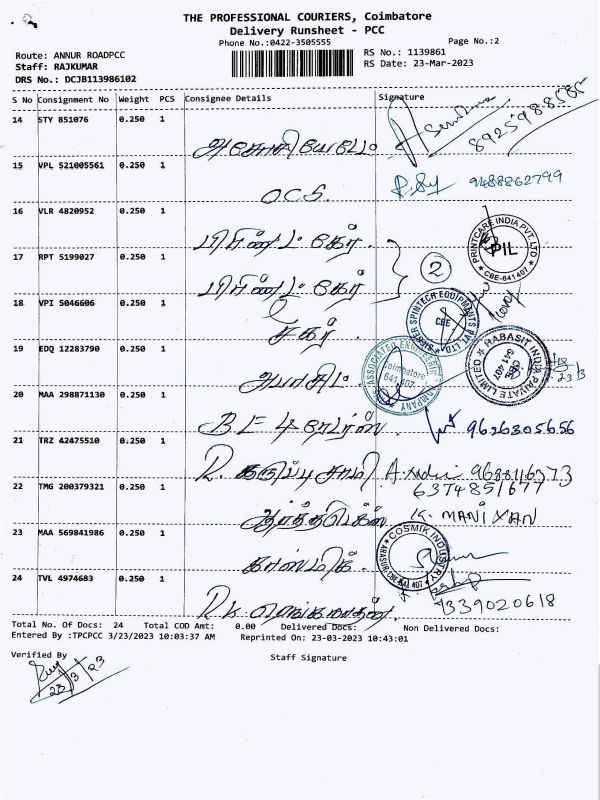 THE PROFESSIONAL COURIERS, Coimbatore
Delivery Runsheet - PCC
Phone No.:0422-3505555
Page No.:2
Route: ANNUR ROADPCC
RS No.: 1139861
Staff: RAJKUMAR
RS Date: 23-Mar-2023
DRS No.: DCJB113986102
S No Consignment No Weight PCS Consignee Details Signature
14 STY 851076 0.250 1
8925988585
15 VPL 521005561 0.250 1
O.C.S. 9488862799
16 VLR 4820952 0.250 1
பிரிண்ட் கேர்
PRINTCARE INDIA PVT. LTD
PIL
CBE-641407
17 RPT 5199027 0.250 1
பிரிண்ட் கேர்
2
18 VPI 5046606 0.250 1
SPINTECH EQUIPMENTS PVT LTD
CBE
19 EDQ 12283790 0.250 1
ASSOCIATED ENGINEERING COMPANY
Coimbatore
641 407.
HABASIT INDIA PRIVATE LIMITED
CBE
641 407
20 MAA 298871130 0.250 1
9626305656
21 TRZ 42475510 0.250 1
R. கருப்புசாமி
9688116373
22 TMG 200379321 0.250 1
6374851677
K. MANIXAN
23 MAA 569841986 0.250 1
காஸ்மிக்
COSMIK INDUSTRY
24 TVL 4974683 0.250 1
7339020618
Total No. Of Docs: 24 Total COD Amt: 0.00 Delivered Docs: Non Delivered Docs:
Entered By :TPCPCC 3/23/2023 10:03:37 AM Reprinted On: 23-03-2023 10:43:01
Verified By
Staff Signature
23/3/23